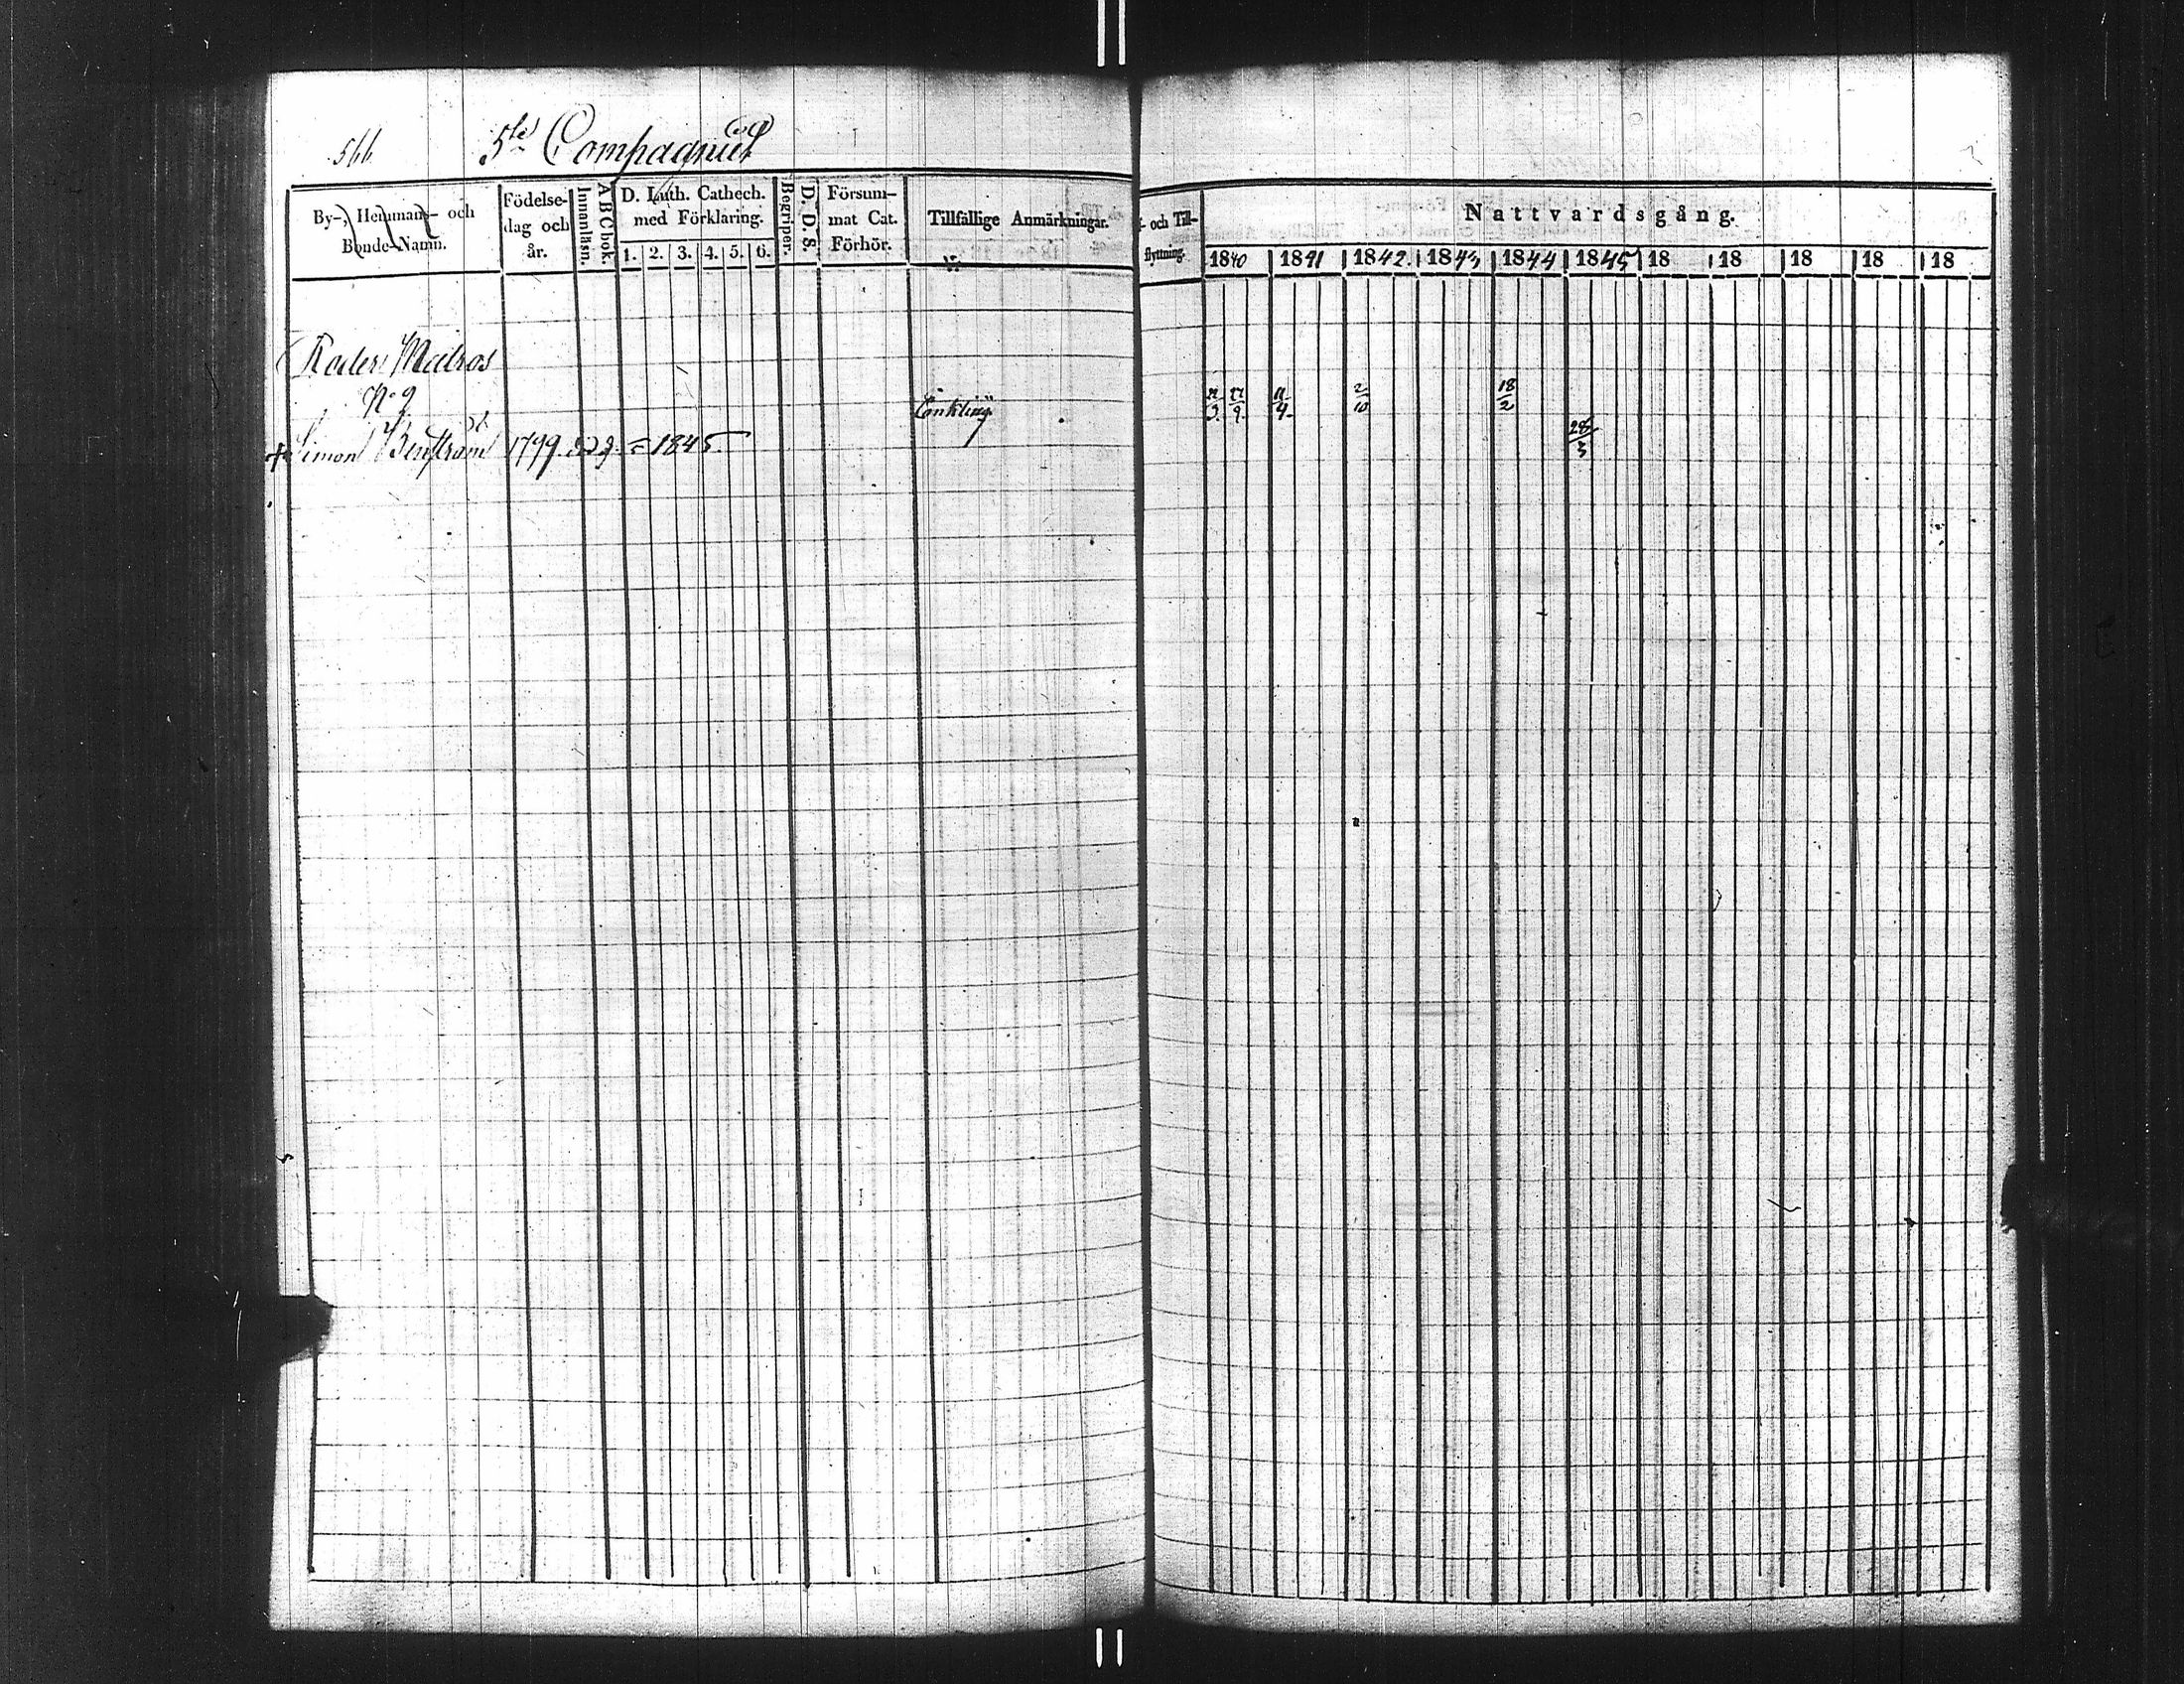 566 5te Compagniet
By-, Hemmans- och Bonde-Namn.
Födelse-dag och år.
Innanläsn.
ABC bok.
D. Luth. Cathech. med Förklaring.
1. 2. 3. 4. 5. 6.
Begriper.
D. D. S.
Försum-mat Cat. Förhör.
Tillfällige Anmärkningar.
och Till-flyttning.
Nattvardsgång.
1840 1841 1842. 1843 1844 1845 18 18 18 18 18
Matros
No 9
Enkling
27/9. 11/4. 2/10 18/2
Simon 1799. = 1845.
28/3